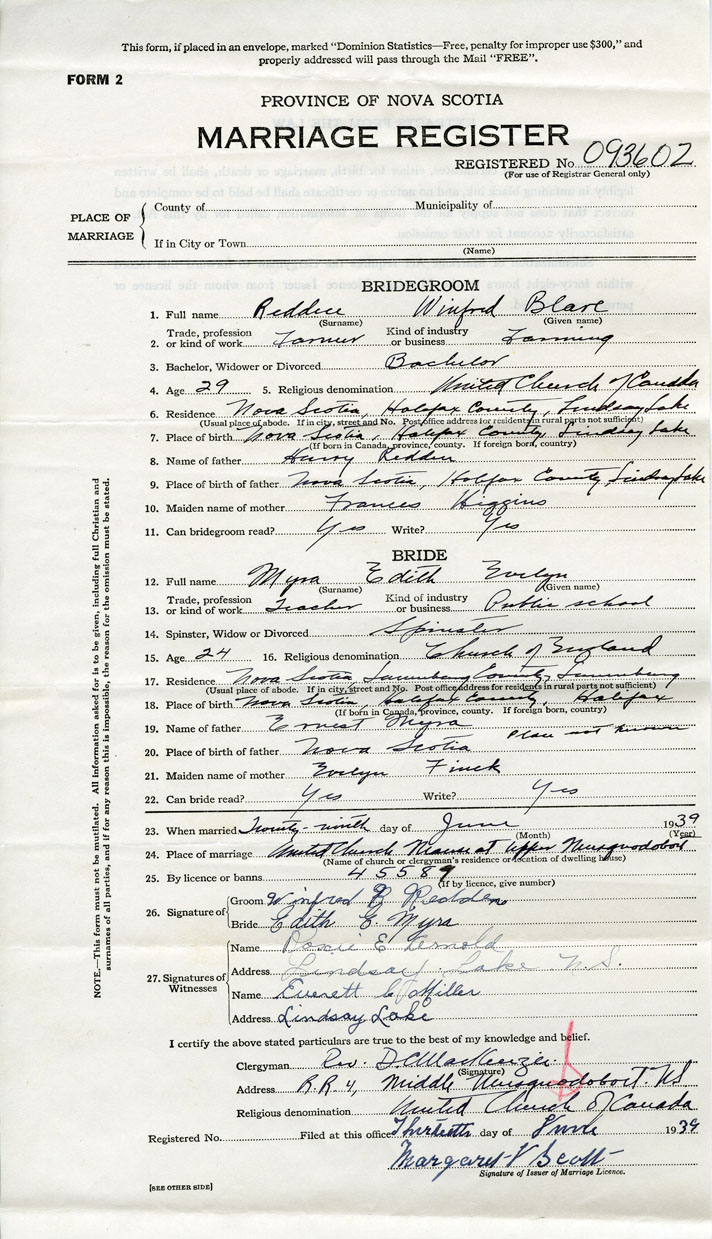 This form, if placed in an envelope, marked "Dominion Statistics—Free, penalty for improper use $300," and
properly addressed will pass through the Mail "FREE".
FORM 2
PROVINCE OF NOVA SCOTIA
MARRIAGE REGISTER
REGISTERED No. 093602
(For use of Registrar General only)
PLACE OF MARRIAGE
County of Municipality of
If in City or Town
(Name)
BRIDEGROOM
1. Full name Redden Winfred Blare
(Surname) (Given name)
2. Trade, profession or kind of work Farmer Kind of industry or business Farming
3. Bachelor, Widower or Divorced Bachelor
4. Age 29 5. Religious denomination United Church of Canada
6. Residence Nova Scotia, Halifax County, Lindsay Lake
(Usual place of abode. If in city, street and No. Post office address for residents in rural parts not sufficient)
7. Place of birth Nova Scotia, Halifax County, Lindsay Lake
(If born in Canada, province, county. If foreign born, country)
8. Name of father Harry Redden
9. Place of birth of father Nova Scotia, Halifax County Lindsay Lake
10. Maiden name of mother Frances Higgins
11. Can bridegroom read? Yes Write? Yes
BRIDE
12. Full name Myra Edith Evelyn
(Surname) (Given name)
13. Trade, profession or kind of work Teacher Kind of industry or business Public school
14. Spinster, Widow or Divorced Spinster
15. Age 24 16. Religious denomination Church of England
17. Residence Nova Scotia, Lunenburg County, Lunenburg
(Usual place of abode. If in city, street and No. Post office address for residents in rural parts not sufficient)
18. Place of birth Nova Scotia, Halifax County, Halifax
(If born in Canada, province, county. If foreign born, country)
19. Name of father Ernest Myra
20. Place of father Nova Scotia Place not known
21. Maiden name of mother Evelyn Finck
22. Can bride read? Yes Write? Yes
23. When married Twenty-ninth day of June 1939
(Month) (Year)
24. Place of marriage United Church Manse at Upper Musquodoboit
(Name of church or clergyman's residence or location of dwelling house)
25. By licence or banns 45589
(If by licence, give number)
26. Signature of
Groom Winfred B Redden
Bride Edith E Myra
27. Signatures of Witnesses
Name E
Address Lindsay Lake N.S.
Name Everett Miller
Address Lindsay Lake
I certify the above stated particulars are true to the best of my knowledge and belief.
Clergyman Rev. D. MacKenzie
(Signature)
Address R.R 4, Middle Musquodoboit NS
Religious denomination United Church of Canada
Registered No. Filed at this office Thirtieth day of June 1939
Margaret V Scott
Signature of Issuer of Marriage Licence.
[SEE OTHER SIDE]
NOTE.—This form must not be mutilated. All information asked for is to be given, including full Christian and
surnames of all parties, and if for any reason this is impossible, the reason for the omission must be stated.